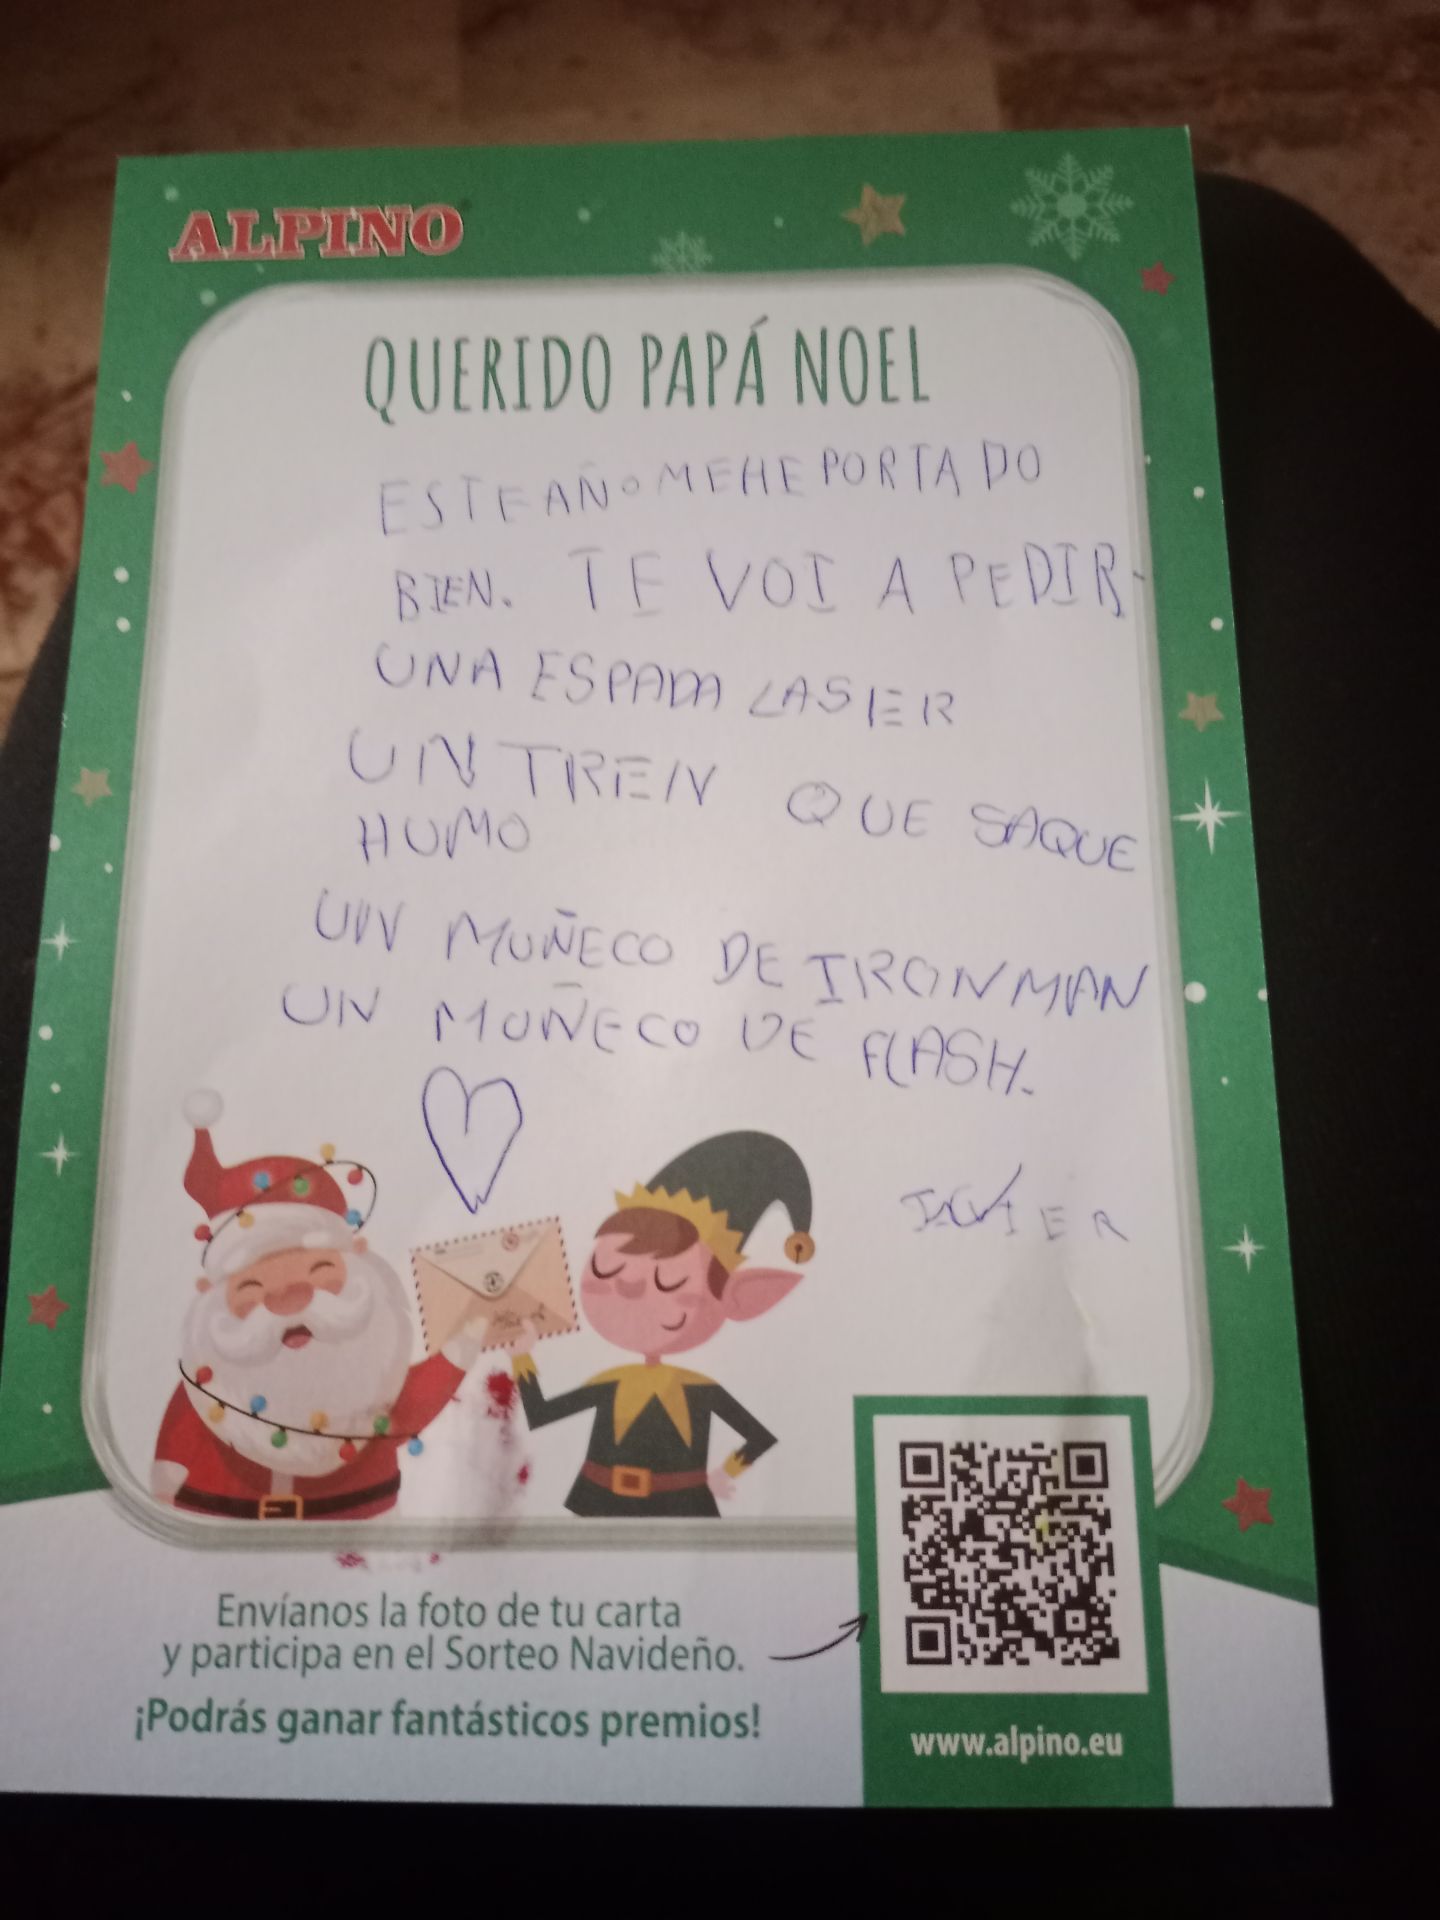 ALPINO
QUERIDO PAPÁ NOEL
ESTE AÑO ME HE PORTADO
BIEN. TE VOI A PEDIR
UNA ESPADA LASER
UN TREN QUE SAQUE
HUMO
UN MUÑECO DE IRONMAN
UN MUÑECO DE FLASH.
JAVIER
Envíanos la foto de tu carta
y participa en el Sorteo Navideño.
¡Podrás ganar fantásticos premios!
www.alpino.eu